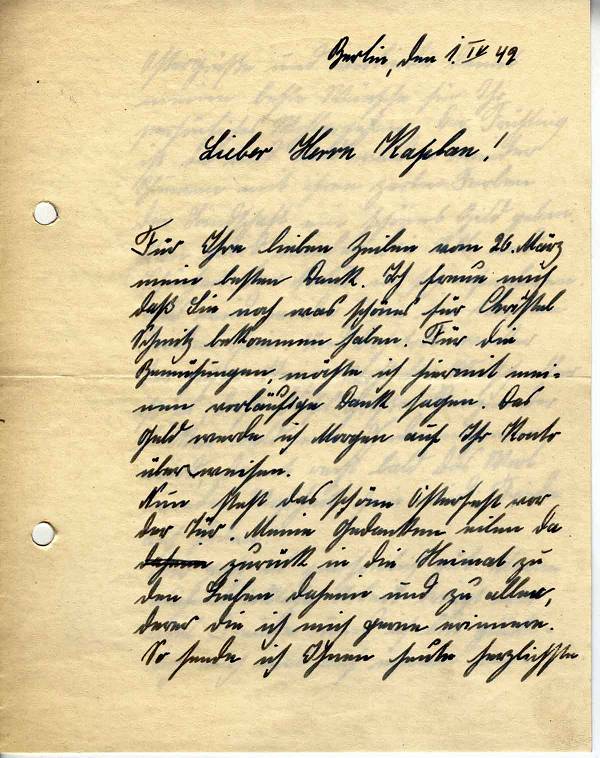 Berlin, den 1. IV 42
Lieber Herrn Kaplan!
Für Ihre lieben Zeilen vom 26. März
mein besten Dank. Ich freue mich
daß Sie noch was schönes für Christel
Schmitz bekommen haben. Für die
Bemühungen, möchte ich hiermit mei-
nen vorläufige Dank sagen. Das
Geld werde ich Morgen auf Ihr Konto
überweisen.
Nun steht das schöne Osterfest vor
der Tür. Meine Gedanken eilen da
daheim zurück in die Heimat zu
den Lieben daheim und zu allen,
derer die ich mich gerne erinnere.
So sende ich Ihnen heute herzlichste